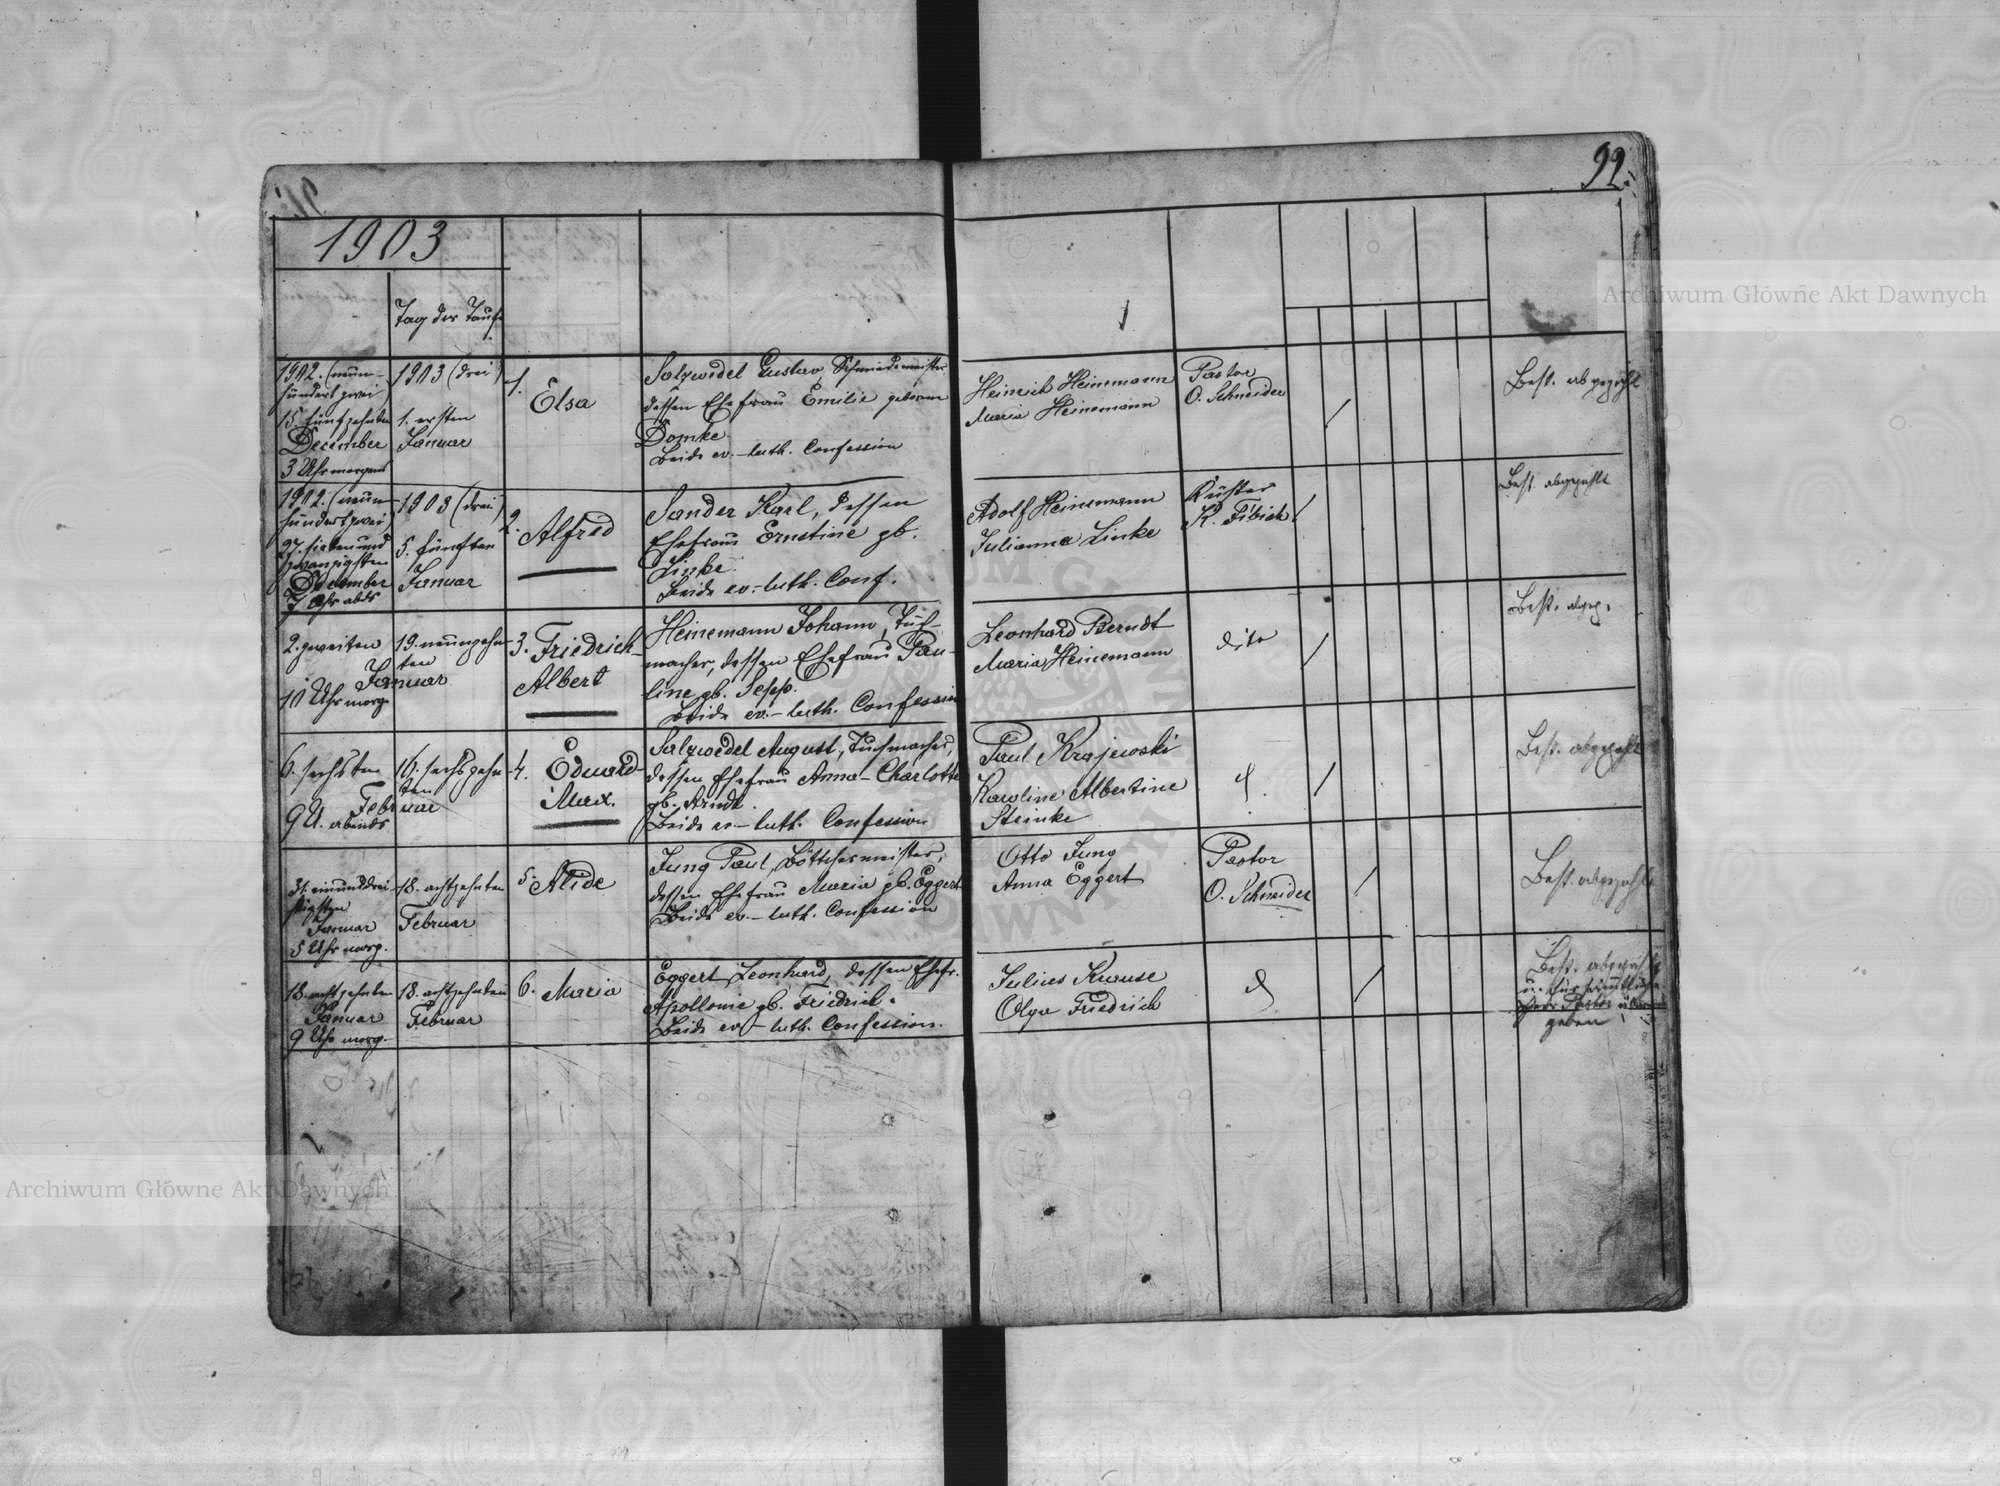 92.
1903
Tag der Taufe
1902. (neun-
hundert zwei)
15. fünfzehnten
December
3 Uhr morgens
1903 (drei)
1. ersten
Januar
1.
Elsa
Salzwedel Gustav Schmiedemeister
dessen Ehefrau Emilie geborne
Domke.
Beide ev.-luth. Confession
Heinrich Heinemann
Maria Heinemann
Pastor
O. Schneider
/
Best. abgezahlt
1902. (neun-
hundert zwei)
27. siebenund
zwanzigsten
December
7 Uhr abds
1903 (drei)
5. fünften
Januar
2.
Alfred
Sander Karl, dessen
Ehefrau Ernstine gb.
Linke.
Beide ev.-luth. Conf.
Adolf Heinemann
Julianna Linke
Küster
R. Fibich
/
Best. abgezahlt
2. zweiten
Januar
10 Uhr morg.
19. neunzehn-
ten
3. Friedrich-
Albert
Heinemann Johann, Tuch-
macher, dessen Ehefrau Pau-
line gb. Sepp.
Beide ev.-luth. Confession
Leonhard Berndt
Maria Heinemann
dito
/
Best. abgez.
6. sechsten
Februar
9 U. abends
16. sechszehn-
ten
4. Eduard-
Max.
Salzwedel August, Tuchmacher,
dessen Ehefrau Anna-Charlotte
gb. Arndt.
Beide ev-luth. Confession
Paul Krajewski
Karoline Albertine
Steinke
/
Best. abgezahlt
31. einunddrei-
ßigsten
Januar
5 Uhr morg.
18. achtzehnten
Februar
5. Alide
Jung Paul, Böttchermeister,
dessen Ehefrau Maria gb. Eggert
Beide ev-luth. Confession
Otto Jung
Anna Eggert
Pastor
O. Schneider
/
Best. abgezahlt
18. achtzehnten
Januar
9 Uhr morg.
18. achtzehnten
Februar
6. Maria
Eggert Leonhard, dessen Ehefr.
Apollonie gb. Friedrich.
Beide ev-luth. Confession.
Julius Krause
Olga Friedrich
/
Best. abgezahlt
geben
Archiwum Główne Akt Dawnych
Archiwum Główne Akt Dawnych